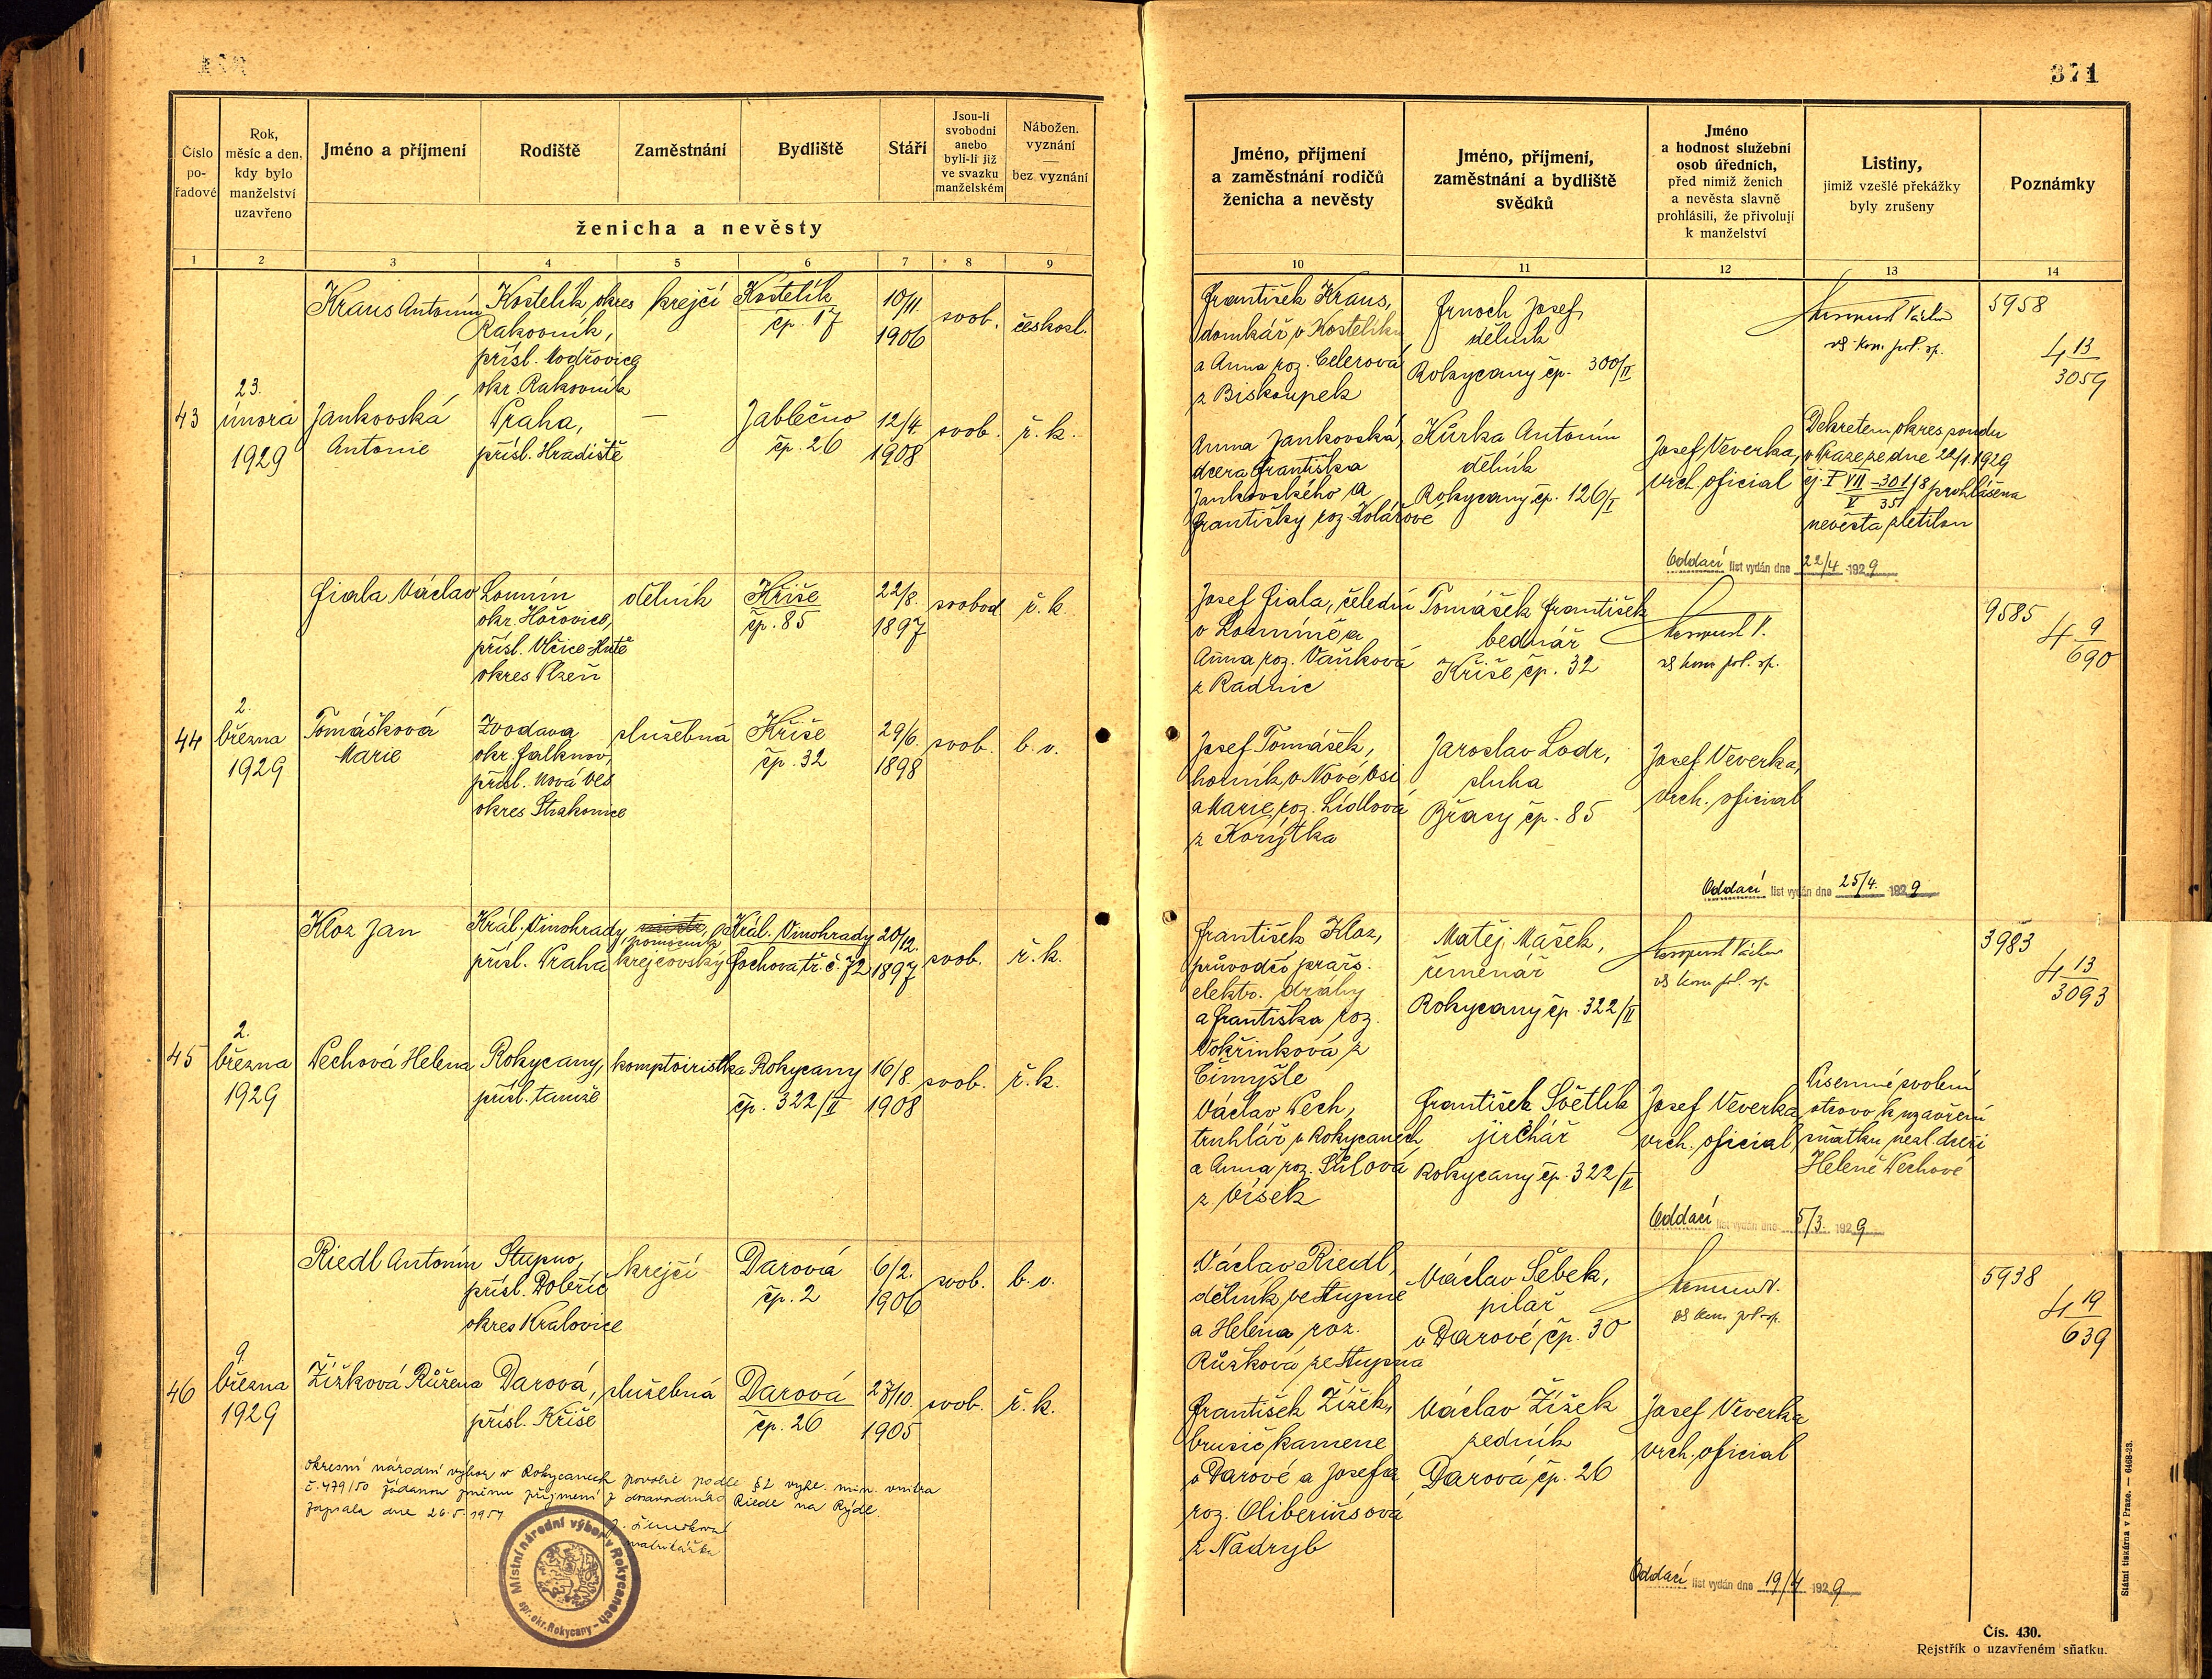 371
Číslo
po-
řadové
Rok,
měsíc a den,
kdy bylo
manželství
uzavřeno
Jméno a příjmení
Rodiště
Zaměstnání
Bydliště
Stáří
Jsou-li
svobodni
anebo
byli-li již
ve svazku
manželském
Nábožen.
vyznání
—
bez vyznání
ženicha a nevěsty
1 2 3 4 5 6 7 8 9
Kraus Antonín
Kostelík, okres
Rakovník,
přísl. Modřovice
okr. Rakovník
krejčí
Kostelík
čp. 17
10/11
1906
svob.
českosl.
43
23.
února
1929
Jankovská
Antonie
Praha,
přísl. Hradiště
—
Jablečno
čp. 26
12/4.
1908
svob.
ř. k.
Fiala Václav
okr. Hořovice,
přísl. Vlčice-Hutě
okres Plzeň
dělník
Kříše
čp. 85
22/8.
1897
svobod
ř. k.
44
2.
března
1929
Tomášková
Marie
okr. Falknov,
přísl. Nová Ves
okres Strakonice
služebná
Kříše
čp. 32
29/6.
1898
svob.
b. v.
Kloz Jan
Král. Vinohrady,
přísl. Praha
pomocník
krejčovský
Král. Vinohrady
Fochova tř. č. 72
20/12.
1897
svob.
ř. k.
45
2.
března
1929
Pechová Helena
Rokycany,
přísl. tamže
komptoiristka
Rokycany
čp. 322/II
16/8.
1908
svob.
ř. k.
Riedl Antonín
Stupno,
přísl. Dobříč
okres Kralovice
krejčí
Darová
čp. 2
6/2.
1906
svob.
b. v.
46
9.
března
1929
Žížková Růžena
Darová,
přísl. Kříše
služebná
Darová
čp. 26
27/10.
1905
svob.
ř. k.
okresní národní výbor v Rokycanech povolil podle § 2 vyhl. min. vnitra
č. 479/50 žádanou změnu příjmení z dosavadního Riedl na Rýdl.
zapsala dne 26.5.1951
matrikářka
Místní národní výbor v Rokycanech
spr. okr. Rokycany
Jméno, příjmení
a zaměstnání rodičů
ženicha a nevěsty
Jméno, příjmení,
zaměstnání a bydliště
svědků
Jméno
a hodnost služební
osob úředních,
před nimiž ženich
a nevěsta slavně
prohlásili, že přivolují
k manželství
Listiny,
jimiž vzešlé překážky
byly zrušeny
Poznámky
10 11 12 13 14
František Kraus,
domkář v Kostelíku
a Anna roz. Celerová
z Biskoupek
Josef,
dělník
Rokycany čp. 300/II
5958
4 13
3059
Anna Jankovská,
dcera Františka
Jankovského a
Františky roz. Kolářové
Kůrka Antonín
dělník
Rokycany čp. 126/I
Josef Veverka,
vrch. oficial
Dekretem okres. soudu
v Praze ze dne 22/1. 1929
čj. P VII - 301/8 prohlášena
V 35
nevěsta zletilou
Oddací list vydán dne 22/4 1929
Josef Fiala, čeledín
Anna roz. Vaňková
z Radnic
Tomášek František
bednář
Kříše čp. 32
9585
4 9
690
Josef Tomášek,
horník v Nové Vsi
a Marie roz. Lídlová
z Korýtka
Jaroslav Lodr,
sluha
Břasy čp. 85
Josef Veverka,
vrch. oficial
Oddací list vydán dne 25/4. 1929
František Kloz,
průvodčí praž.
elektr. dráhy
a Františka roz.
Vokřinková z
Matěj Mašek,
řemenář
Rokycany čp. 322/II
3983
4 13
3093
Václav Pech,
truhlář v Rokycanech,
a Anna roz. Šůlová
z Vísek
František Světlík
jirchář
Rokycany čp. 322/II
Josef Veverka
vrch. oficial
Písemné svolení
otcovo k uzavření
sňatku nezl. dceři
Heleně Pechové
Oddací list vydán dne 5/3. 1929
Václav Riedl,
dělník ve Stupně
a Helena roz.
Růžková ze Stupna
Václav Šebek,
pilař
v Darové čp. 30
5938
4 19
639
František Žížek,
brusič kamene
v Darové a Josefa
roz. Oliberiusová
z Nadryb
Václav Žížek
zedník
Darová čp. 26
Josef Veverka
vrch. oficial
Oddací list vydán dne 19/4 1929
Státní tiskárna v Praze. – 6468-23.
Čís. 430.
Rejstřík o uzavřeném sňatku.